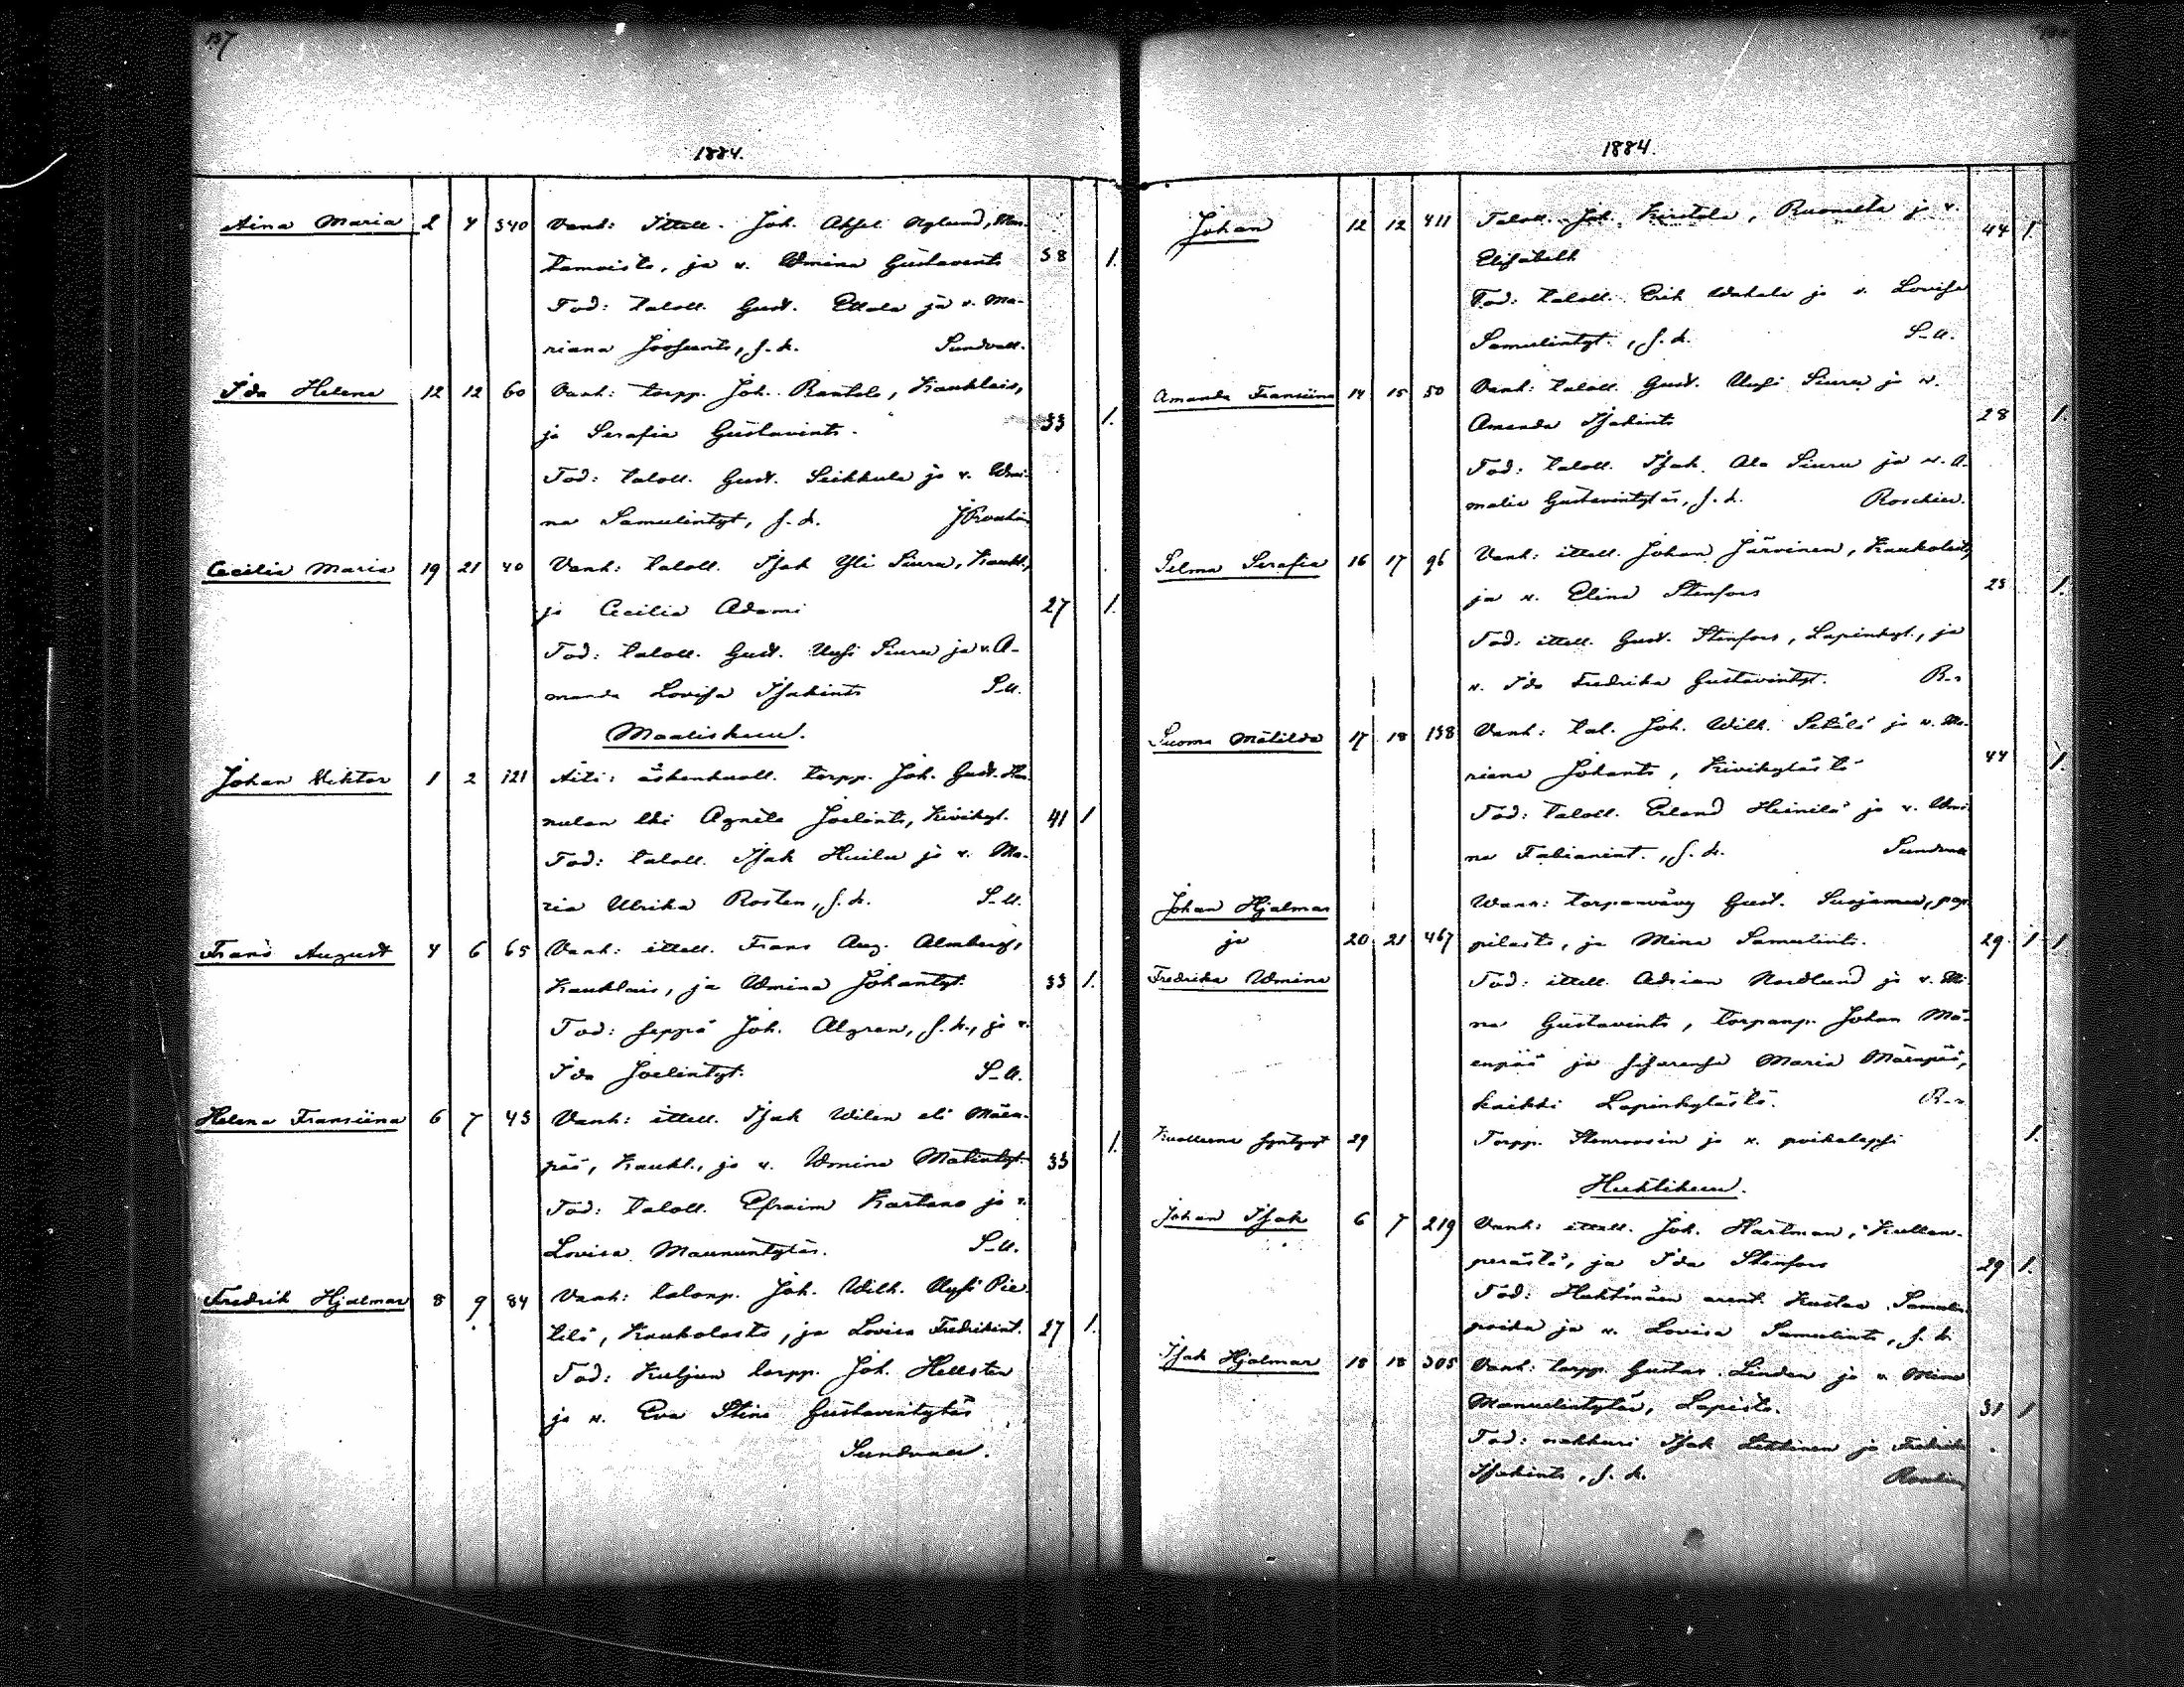 137
1884.
Aina Maria 2 4 340 Vanh: Ittell. Joh. Aksel Nylund, Man-
tamoista, ja v. Wmina Gustavints 38 1.
Tod: taloll. Gust. Ellola ja v. Ma-
riana Joosunts, s. k. Sundvall.
Ida Helena 12 12 60 Vanh: torpp. Joh. Rantala, Kauklais,
ja Serafia Gustavints. 33 1.
Tod: taloll. Gust. Seikkula ja v. Wmi-
na Samulintyt, s. k.
Cecilia Maria 19 21 40 Vanh: taloll. Isak Yli Siuru, Kaukl.,
ja Cecilia Adami 27 1.
Tod: taloll. Gust. Uusi Siuru ja v. A-
manda Lovisa Isakints S-ll.
Maaliskuu.
Johan Viktor 1 2 121 Äiti: äskenkuoll. torpp. Joh. Gust. Han-
nulan lki Agneta Joelints, Kivikyl. 41 1
Tod: taloll. Isak Huilu ja v. Ma-
ria Ulrika Rosten, s. k. S-ll.
Frans August 4 6 65 Vanh: ittell. Frans Aug. Almberg,
Kauklais, ja Wmina Johantyt. 33 1.
Tod: seppä Joh. Algren, s. k., ja v.
Ida Joelintyt. S-ll.
Helena Fransiina 6 7 43 Vanh: ittell. Isak Wilen eli Mäen-
pää, Kaukl., ja v. Wmina Matintyt. 33 1.
Tod: taloll. Efraim Kartano ja v.
Lovisa Maununtytär. S-ll.
Fredrik Hjalmar 8 9 84 Vanh: talonp. Joh. Wilh. Uusi Pie-
tilä, Kaukolasta, ja Lovisa Fredrikint. 27 1.
Tod: Kuljun torpp. Joh. Hellsten
ja v. Eva Stina Gustavintytär
Sundvall.
1884.
Johan 12 12 411 Taloll. Joh. Kiistala, Ruonalta ja v. 44 1.
Elisabeth
Tod: taloll. Erik Wakala ja v. Lovisa
Samulintyt., s. k. S-ll.
Amanda Fransiina 14 15 50 Vanh: taloll. Gust. Uusi Siuru ja v.
Amanda Isakints 28 1.
Tod: taloll. Isak Ala Siuru ja v. A-
malia Gustavintytär, s. k. Roschier.
Selma Serafia 16 17 96 Vanh: ittell. Johan Järvinen, Kaukolasta,
ja v. Elina Stenfors 23 1.
Tod: ittell. Gust. Stenfors, Lapinkyl., ja
v. Ida Fredrika Gustavintyt. R-r
Suoma Matilda 17 18 138 Vanh: tal. Joh. Wilh. Setälä ja v. Ma-
riana Johants, Kivikylästä 44 1.
Tod: taloll. Erland Heinilä ja v. Wmi-
na Fabianint., s. k. Sundvall
Johan Hjalmar Wanh: torpanvävy Gust. Suojanen, pap-
ja 20 21 467 pilasta, ja Mina Samulints. 29 1 1
Fredrika Wmina Tod: ittell. Adrian Nordlund ja v. Mi-
na Gustavints, torpanp. Johan Mä-
enpää ja sisarensa Maria Mäenpää,
kaikki Lapinkylästä. R-r
Kuolleena syntynyt 29 Torpp. Stenroosin ja v. poikalapsi 1.
Huhtikuu.
Johan Isak 6 7 219 Vanh: ittell. Joh. Hartman, Kullan-
perästä, ja Ida Stenfors 29 1.
Tod: Huhtmäen arent. Kustaa Samulin
poika ja v. Lovisa Samulints, s. k.
Isak Hjalmar 18 18 305 Vanh: torpp. Gustav Linden ja v. Mina
Manuelintytär, Lapista. 31 1
Tod: nahkuri Isak Lehtinen ja Fredrika
Isakints, s. k.